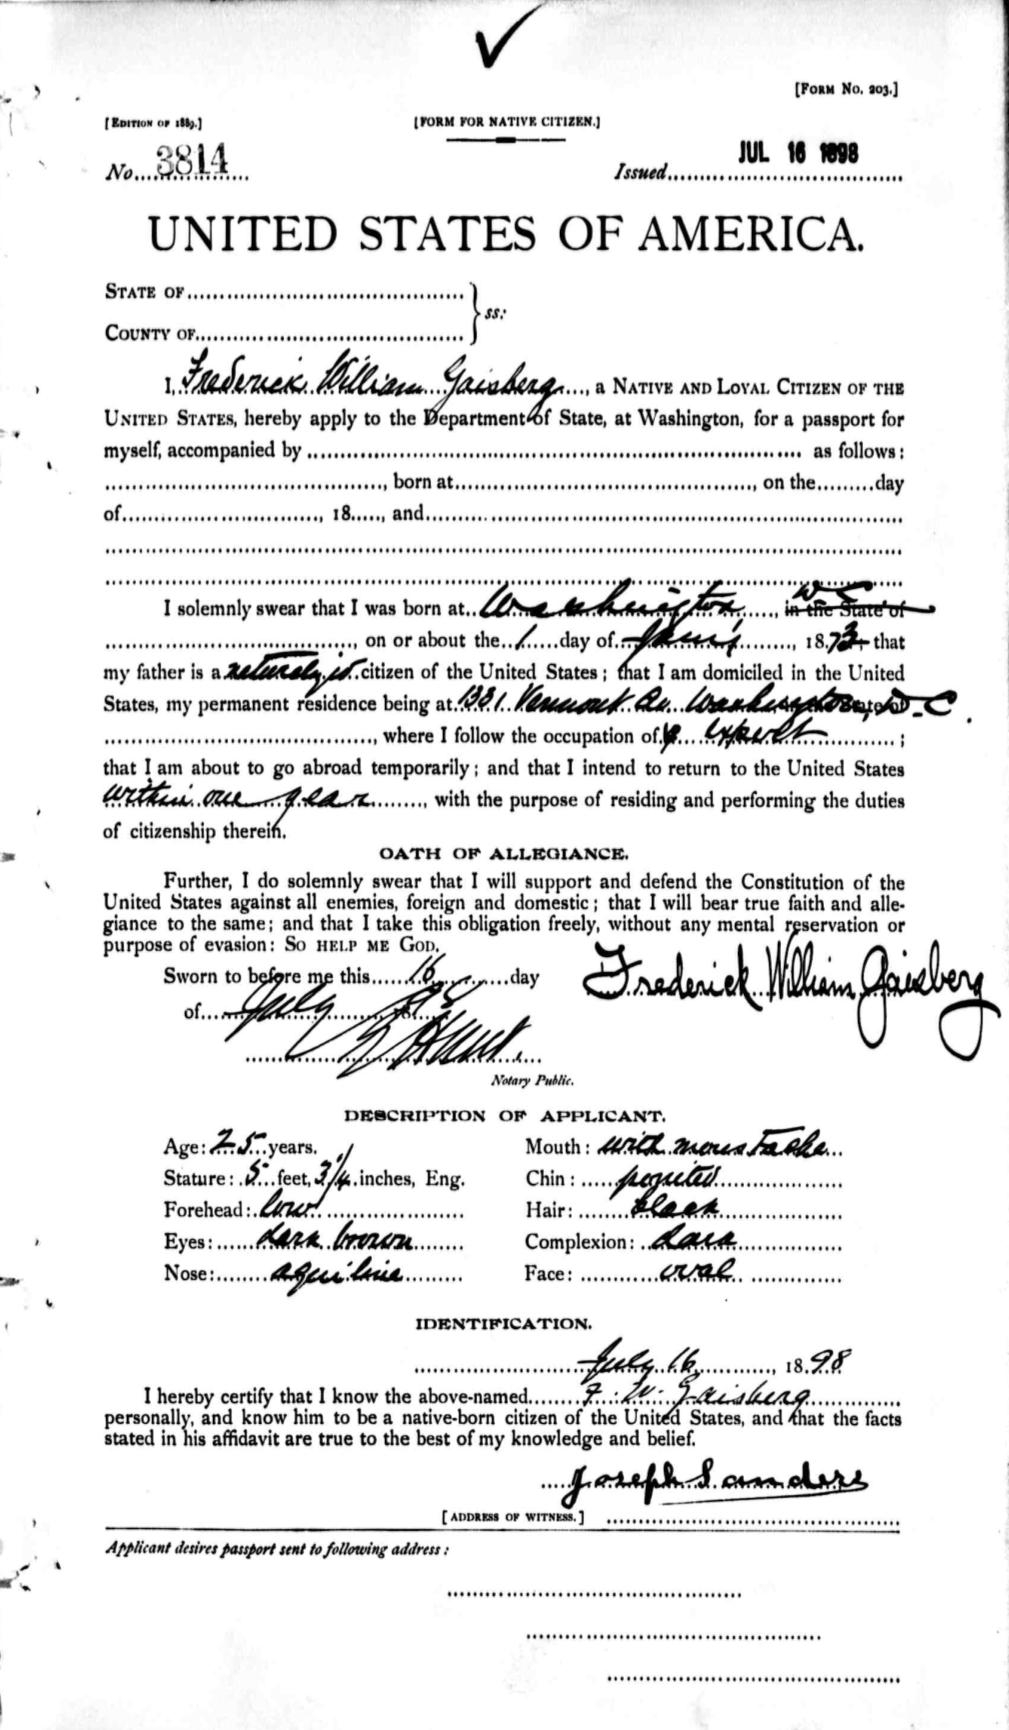 [FORM NO. 203.]
[EDITION OF 1889.] [FORM FOR NATIVE CITIZEN.]
No. 3814 Issued JUL 16 1898
UNITED STATES OF AMERICA.
STATE OF
COUNTY OF } ss:
I, Frederick William Gaisberg, a NATIVE AND LOYAL CITIZEN OF THE
UNITED STATES, hereby apply to the Department of State, at Washington, for a passport for
myself, accompanied by as follows:
, born at, on the day
of, 18, and
I solemnly swear that I was born at Washington, in the State of D C
, on or about the 1 day of Jan'y, 1873; that
my father is a citizen of the United States; that I am domiciled in the United
States, my permanent residence being at 1331 Vermont Av Washington, D. C.
, where I follow the occupation of expert;
that I am about to go abroad temporarily; and that I intend to return to the United States
within one year, with the purpose of residing and performing the duties
of citizenship therein.
OATH OF ALLEGIANCE.
Further, I do solemnly swear that I will support and defend the Constitution of the
United States against all enemies, foreign and domestic; that I will bear true faith and alle-
giance to the same; and that I take this obligation freely, without any mental reservation or
purpose of evasion: SO HELP ME GOD.
Sworn to before me this 16 day Frederick William Gaisberg
of July
Notary Public.
DESCRIPTION OF APPLICANT.
Age: 25 years. Mouth: with moustache
Stature: 5 feet, 3 1/4 inches, Eng. Chin: pointed
Forehead: low Hair: black
Eyes: dark brown Complexion: dark
Nose: aquiline Face: oval
IDENTIFICATION.
July 16, 1898
I hereby certify that I know the above-named F. W. Gaisberg
personally, and know him to be a native-born citizen of the United States, and that the facts
stated in his affidavit are true to the best of my knowledge and belief.
Joseph Sanders
[ADDRESS OF WITNESS.]
Applicant desires passport sent to following address: